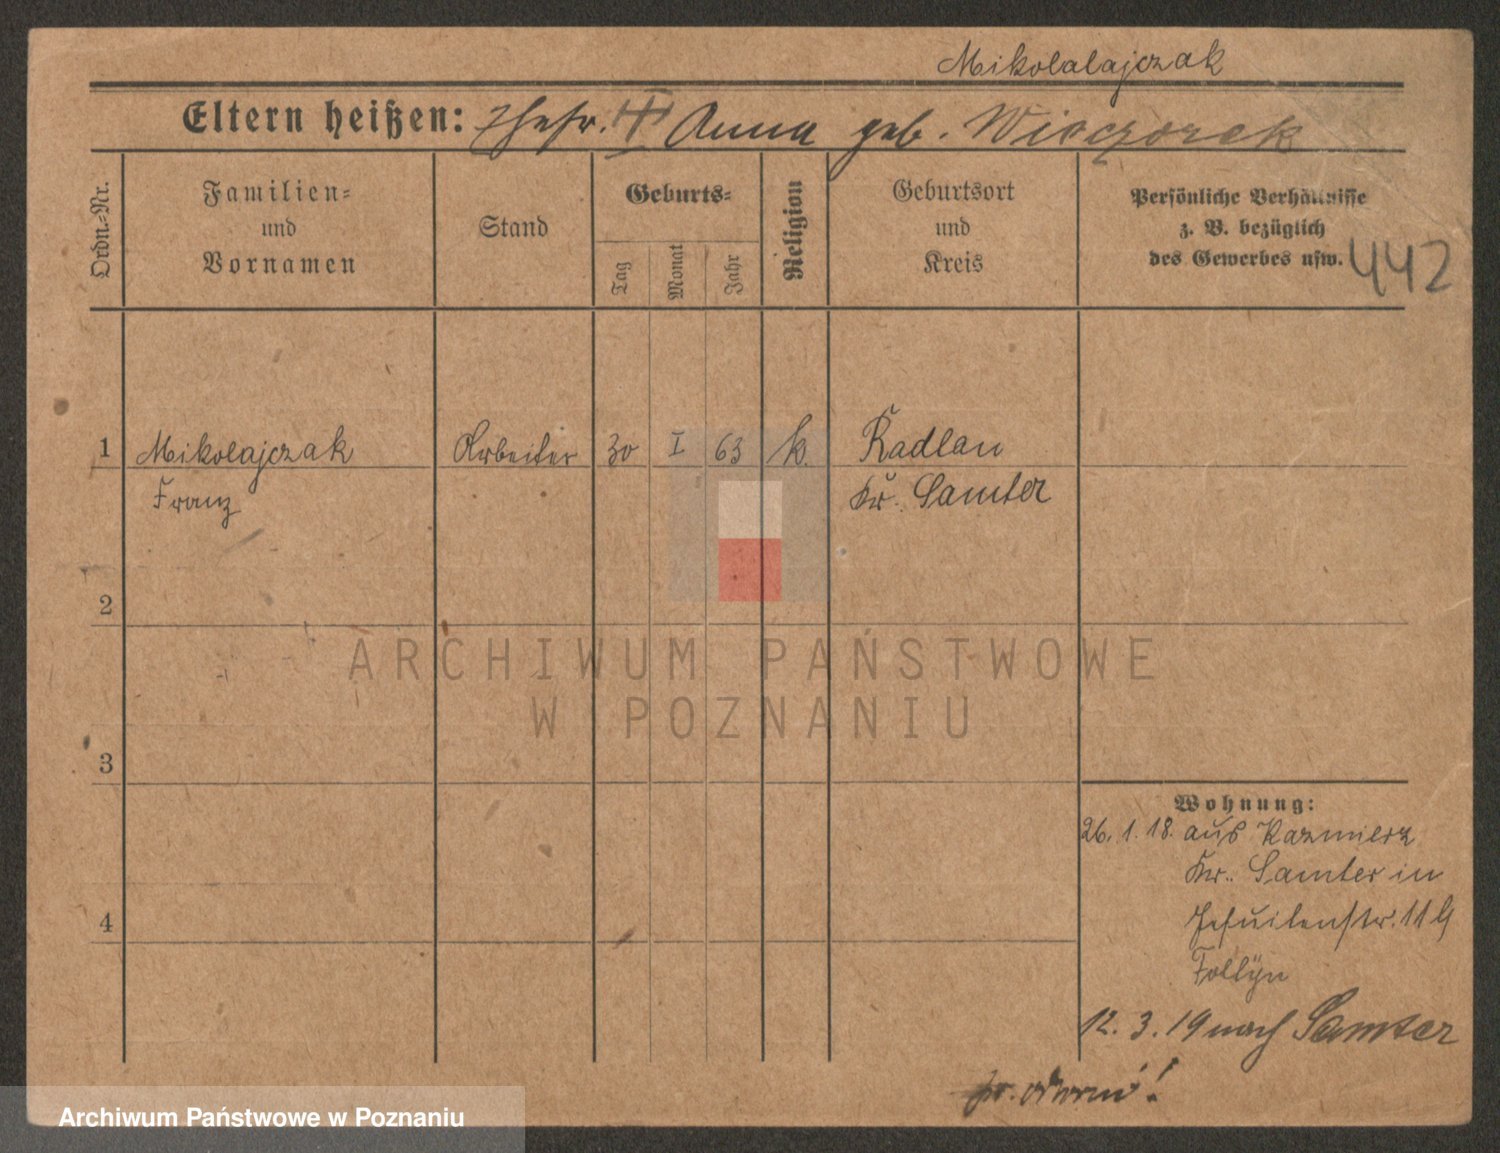 Mikolalajczak
Eltern heißen: Ehefr. Anna geb. Wieczorek
Ordn.-Nr.
Familien-
und
Vornamen
Stand
Geburts-
Tag
Monat
Jahr
Religion
Geburtsort
und
Kreis
Persönliche Verhältnisse
z. B. bezüglich
des Gewerbes usw.
442
1 Mikolajczak Arbeiter 30 I 63 k. Radlau
Franz Kr. Samter
2
3
4
Wohnung:
26. 1. 18. aus Kazmierz
Kr. Samter in
Jesuitenstr. 11
12. 3. 19 nach Samter
ARCHIWUM PAŃSTWOWE
W POZNANIU
Archiwum Państwowe w Poznaniu